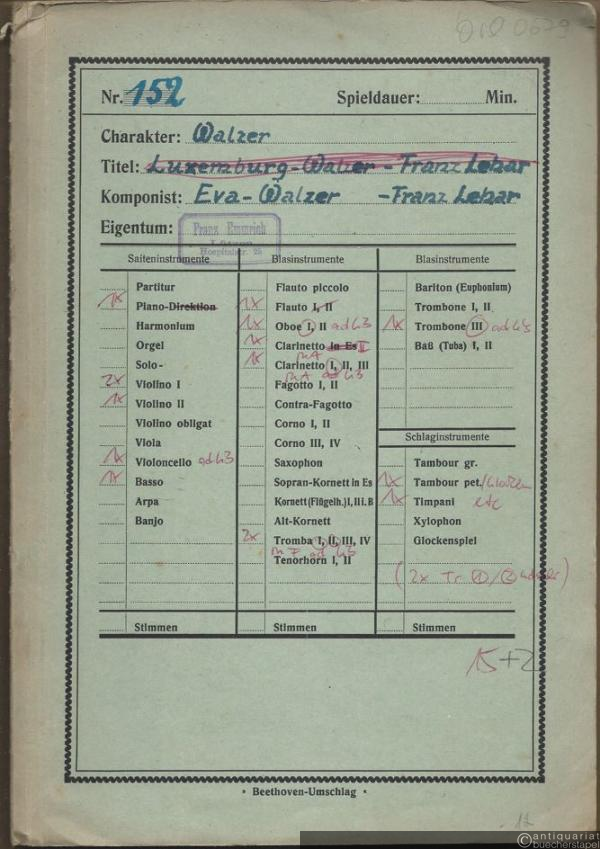 010 0679
Nr. 152 Spieldauer: Min.
Charakter: Walzer
Titel: Luxemburg-Walzer - Franz Lehar
Komponist: Eva-Walzer - Franz Lehar
Eigentum: Franz Emmrich
Hospitalstr. 25
Saiteninstrumente
Partitur
1x Piano-Direktion
Harmonium
Orgel
Solo-
2x Violino I
1x Violino II
Violino obligat
Viola
1x Violoncello ad lib
1x Basso
Arpa
Banjo
Stimmen
Blasinstrumente
Flauto piccolo
1x Flauto I, II
1x Oboe I, II ad lib
1x Clarinetto in Es II
in A
1x Clarinetto I, II, III
in A ad lib
Fagotto I, II
Contra-Fagotto
Corno I, II
Corno III, IV
Saxophon
Sopran-Kornett in Es
Kornett (Flügelh.) I, II i. B
Alt-Kornett
2x Tromba I, II, III, IV
in F ad lib
Tenorhorn I, II
Stimmen
Blasinstrumente
Bariton (Euphonium)
Trombone I, II
1x Trombone III ad lib
Baß (Tuba) I, II
Schlaginstrumente
Tambour gr.
1x Tambour pet. /Glocken
1x Timpani etc
Xylophon
Glockenspiel
(2x Tr. 1/2
Stimmen
15+2
• Beethoven-Umschlag •
antiquariat
buecherstapel